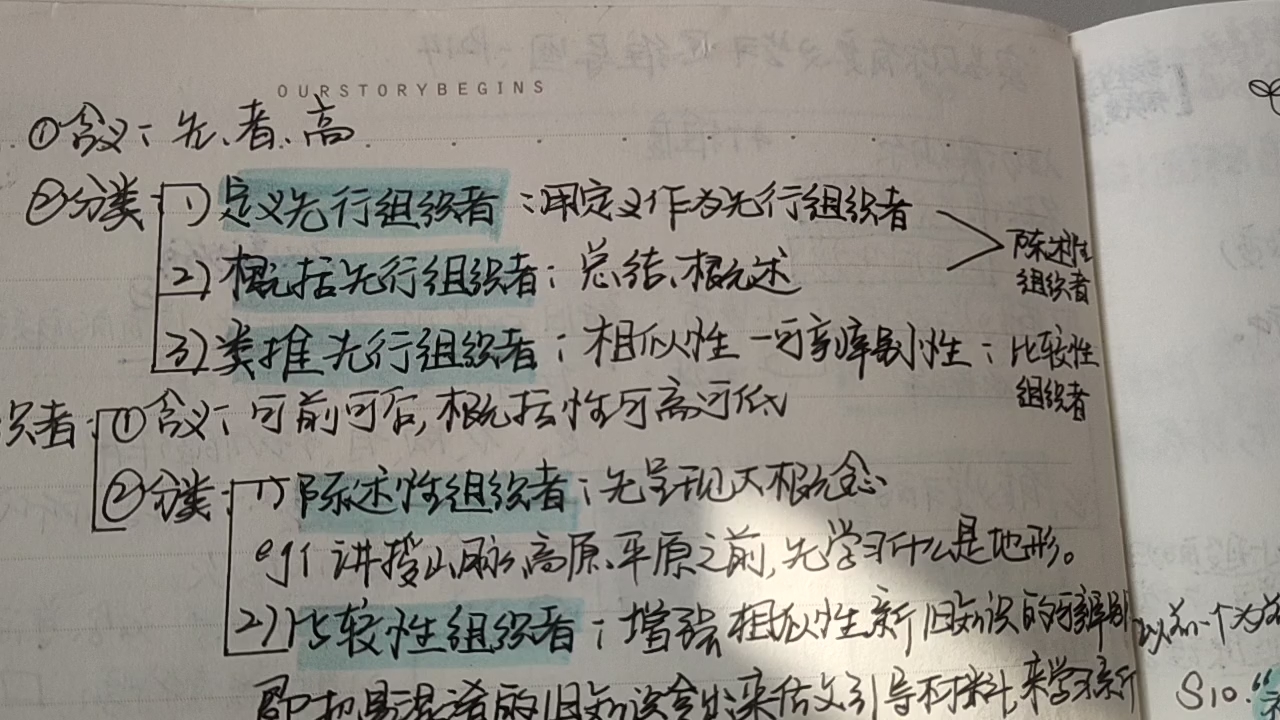 OURSTORYBEGINS
①含义：先、着、高
②分类 1) 定义先行组织者：用定义作为先行组织者
陈述性
组织者
2) 概括先行组织者：总结、概述
3) 类推先行组织者：相似性—可辨别性：比较性
组织者
织者 ①含义：可前可后，概括性可高可低
②分类：1) 陈述性组织者：先呈现大概念
eg1 讲授山脉、高原、平原之前，先学习什么是地形。
2) 比较性组织者：增强相似性新旧知识的可辨别
即把易混淆的旧知识拿出来作为引导材料，来学习新
S10.